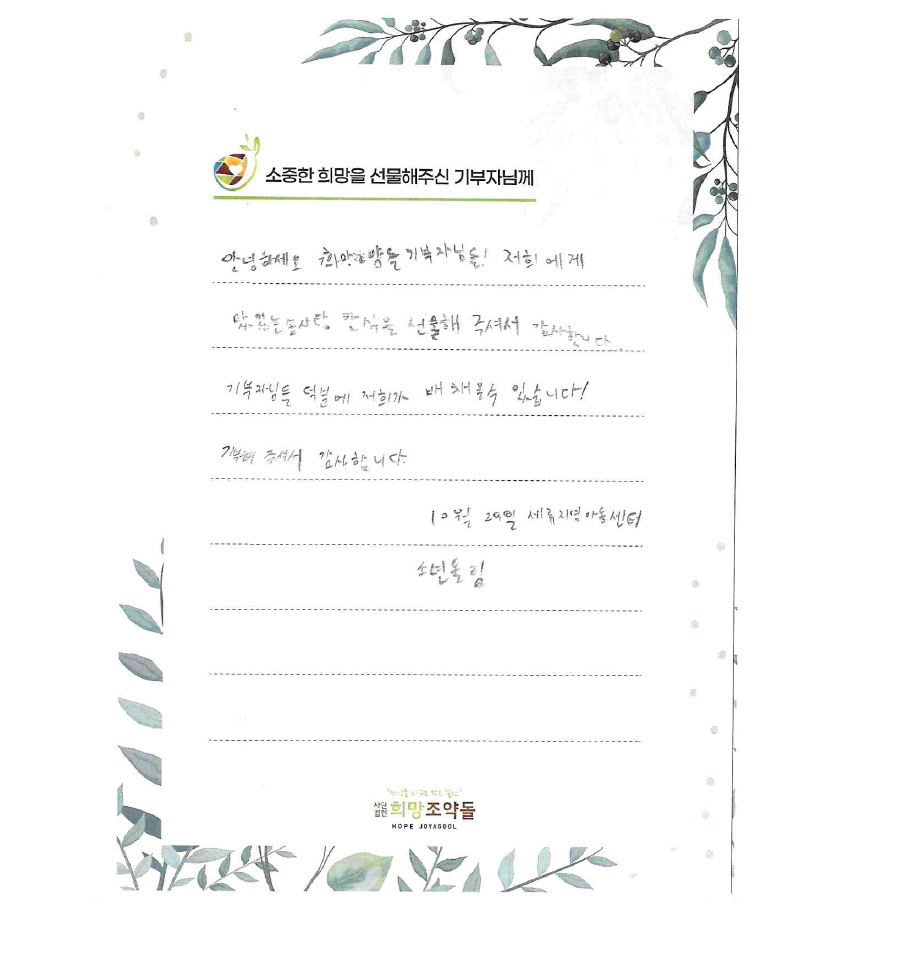 소중한 희망을 선물해주신 기부자님께
안녕하세요 기부자님들! 저희에게
맛있는 간식을 선물해 주셔서 감사합니다.
기부자님들 덕분에 저희가 배 채울수 있습니다!
기부해 주셔서 감사합니다.
10월 29일 세류지역아동센터
올림
사단
법인
희망조약돌
HOPE JOYAGDOL